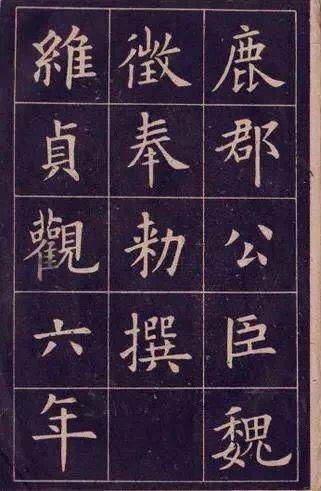 鹿郡公臣魏
徵奉勅撰
維貞觀六年